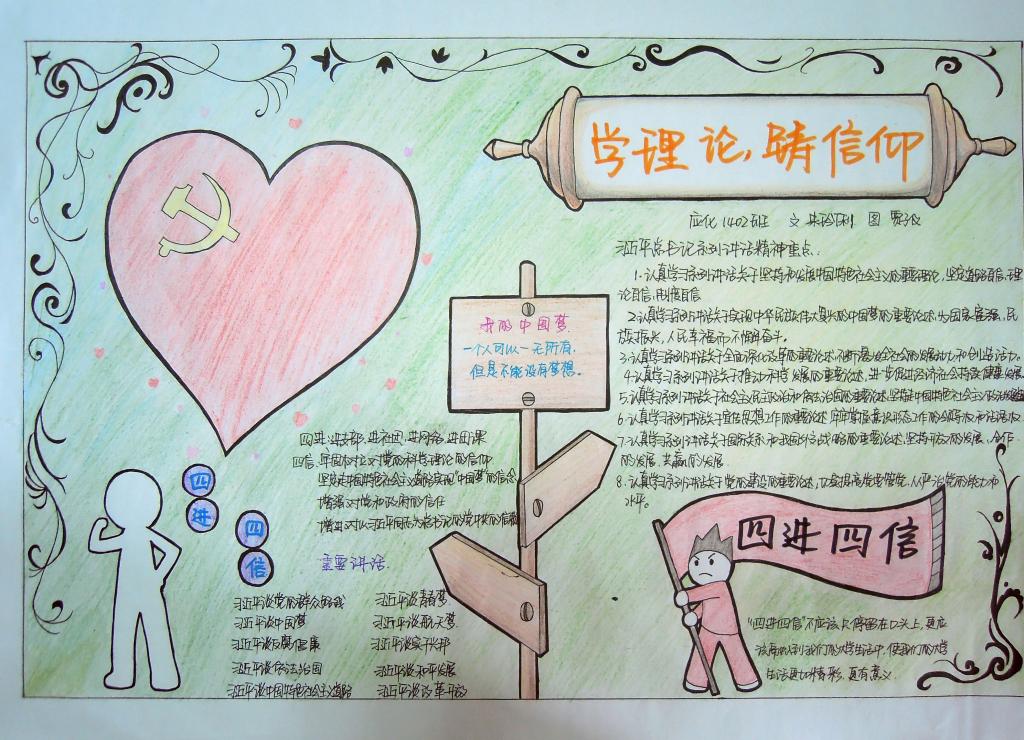 学理论,铸信仰
应化1402班 文 图
习近平总书记系列讲话精神重点:
1.认真学习系列讲话关于坚持和发展中国特色社会主义的重要论述,坚定道路自信,理
论自信,制度自信
2.认真学习系列讲话关于实现中华民族伟大复兴的中国梦的重要论述,为国家富强,民
族振兴,人民幸福而不懈奋斗。
3.认真学习系列讲话关于全面深化改革的重要论述,不断激发全社会的发展活力和创造活力。
4.认真学习系列讲话关于推动科学发展的重要论述,进一步促进经济社会持续健康发展
5.认真学习系列讲话关于社会主义民主政治和依法治国的重要论述,坚持中国特色社会主义政治
6.认真学习系列讲话关于宣传思想工作的重要论述,牢牢掌握意识形态工作的领导权和话语权
7.认真学习系列讲话关于国际关系和我国外交战略的重要论述,坚持开放的发展、合作
的发展、共赢的发展.
8.认真学习系列讲话关于党的建设的重要论述,管党、从严治党的能力和
水平。
我的中国梦
一个人可以一无所有,
但是不能没有梦想。
四进:进支部,进社团,进网络,进团课
四信:牢固树立对党的科学理论的信仰
坚定走中国特色社会主义道路实现中国梦的信念
增强对党和政府的信任
增进对以习近平同志为总书记的党中央的信赖
四
进
四
信
重要讲话
习近平谈党的群众路线 习近平谈青春梦
习近平谈中国梦 习近平谈航天梦
习近平谈反腐倡廉 习近平谈家
习近平谈依法治国 习近平谈和平发展
习近平谈中国特色社会主义道路 习近平谈改革开放
四进四信
"四进四信"不应该只停留在口头上,更应
该用到我们的大学生活中,使我们的大学
生活更加精彩,更有意义.